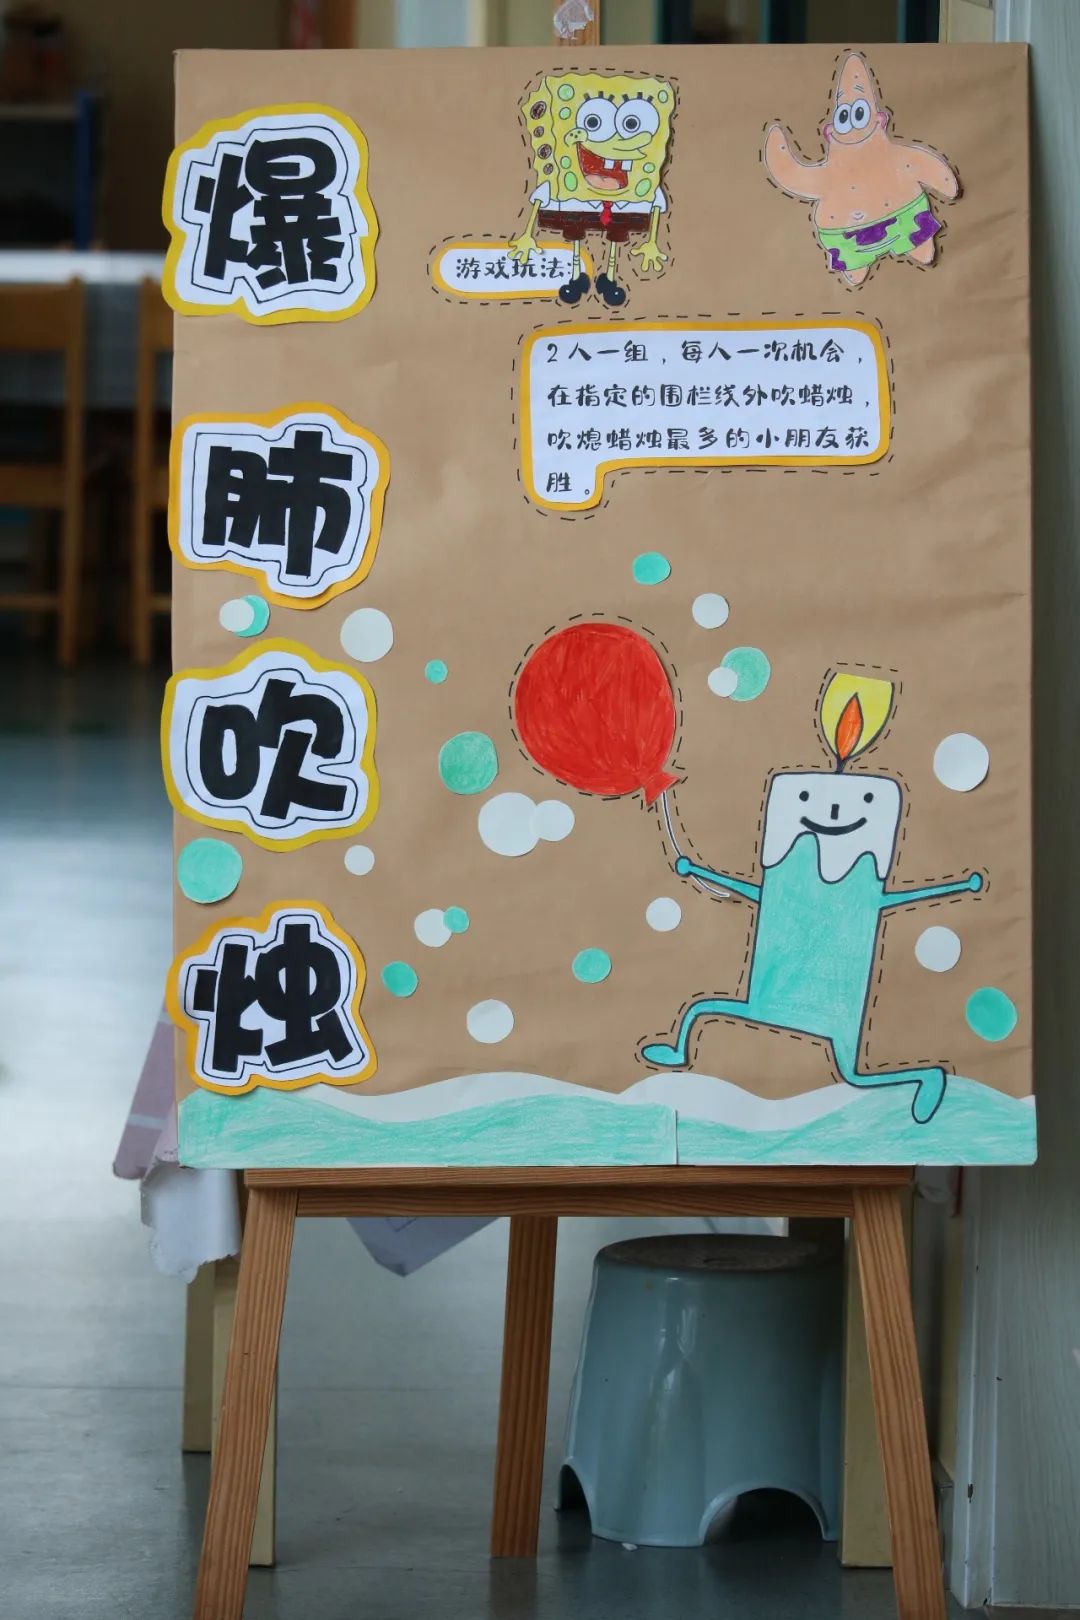 爆肺吹烛
游戏玩法:
2人一组，每人一次机会，
在指定的围栏线外吹蜡烛，
吹熄蜡烛最多的小朋友获
胜。